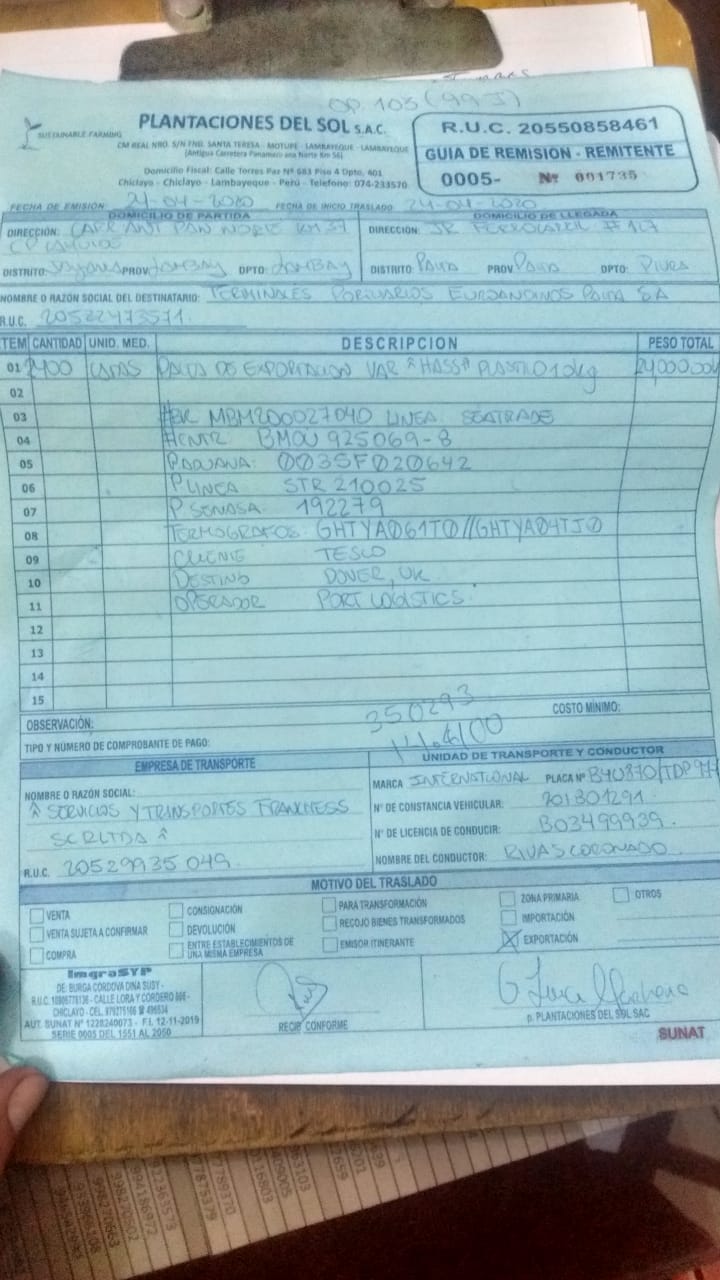 OP. 103 (99 J)
SUSTAINABLE FARMING
PLANTACIONES DEL SOL S.A.C.
CM REAL NRO. S/N FND. SANTA TERESA - MOTUPE - LAMBAYEQUE - LAMBAYEQUE
(Antigua Carretera Panamericana Norte Km 56)
Domicilio Fiscal: Calle Torres Paz Nº 683 Piso 4 Dpto. 401
Chiclayo - Chiclayo - Lambayeque - Perú - Telefono: 074-233570
R.U.C. 20550858461
GUIA DE REMISION - REMITENTE
0005- Nº 001735
FECHA DE EMISIÓN: 24-04-2020 FECHA DE INICIO TRASLADO: 24-04-2020
DOMICILIO DE PARTIDA
DIRECCIÓN: CARR ANT PAN NORTE KM 37
DISTRITO: PROV: LAMBAY DPTO: LAMBAY
DOMICILIO DE LLEGADA
DIRECCIÓN: JR FERROCARRIL # 127
DISTRITO: PAITA PROV: PAITA DPTO: PIURA
NOMBRE O RAZÓN SOCIAL DEL DESTINATARIO: TERMINALES PORTUARIOS EUROANDINOS PAITA SA
R.U.C. 20522473571
ITEM CANTIDAD UNID. MED. DESCRIPCION PESO TOTAL
01 2400 CAJAS PALTA DE EXPORTACION VAR "HASS" PLASTICO 10kg 24,000.00
02
03 #BK MBM200027040 LINEA SEATRADE
04 #CNTR BMOU 925069-8
05 P.ADUANA: 0035F020642
06 P LINEA STR 210025
07 P. SENASA 192279
08 TERMOGRAFOS GHTYA061T0//GHTYA04TJ0
09 CLIENTE TESCO
10 DESTINO DOVER, UK
11 OPERADOR PORT LOGISTICS.
12
13
14
15
OBSERVACIÓN: 350293 COSTO MÍNIMO:
TIPO Y NÚMERO DE COMPROBANTE DE PAGO:
EMPRESA DE TRANSPORTE
NOMBRE O RAZÓN SOCIAL:
" SERVICIOS Y TRANSPORTES FRANCHESS
SCRLTDA "
R.U.C. 20529935049
UNIDAD DE TRANSPORTE Y CONDUCTOR
MARCA INTERNATIONAL PLACA Nº
Nº DE CONSTANCIA VEHICULAR: 201301291
Nº DE LICENCIA DE CONDUCIR: B03499939.
NOMBRE DEL CONDUCTOR: RIVAS CORONADO
MOTIVO DEL TRASLADO
VENTA CONSIGNACIÓN PARA TRANSFORMACIÓN ZONA PRIMARIA OTROS
VENTA SUJETA A CONFIRMAR DEVOLUCIÓN RECOJO BIENES TRANSFORMADOS IMPORTACIÓN
COMPRA ENTRE ESTABLECIMIENTOS DE EMISOR ITINERANTE EXPORTACIÓN
UNA MISMA EMPRESA
ImgraSYP
DE: BURGA CORDOVA DINA SUSY -
CALLE LORA Y CORDERO
CHICLAYO - CEL.
AUT. SUNAT Nº 1228240073 - F.I. 12-11-2019
SERIE 0005 DEL 1551 AL 2050
RECIBI CONFORME
p. PLANTACIONES DEL SOL SAC
SUNAT